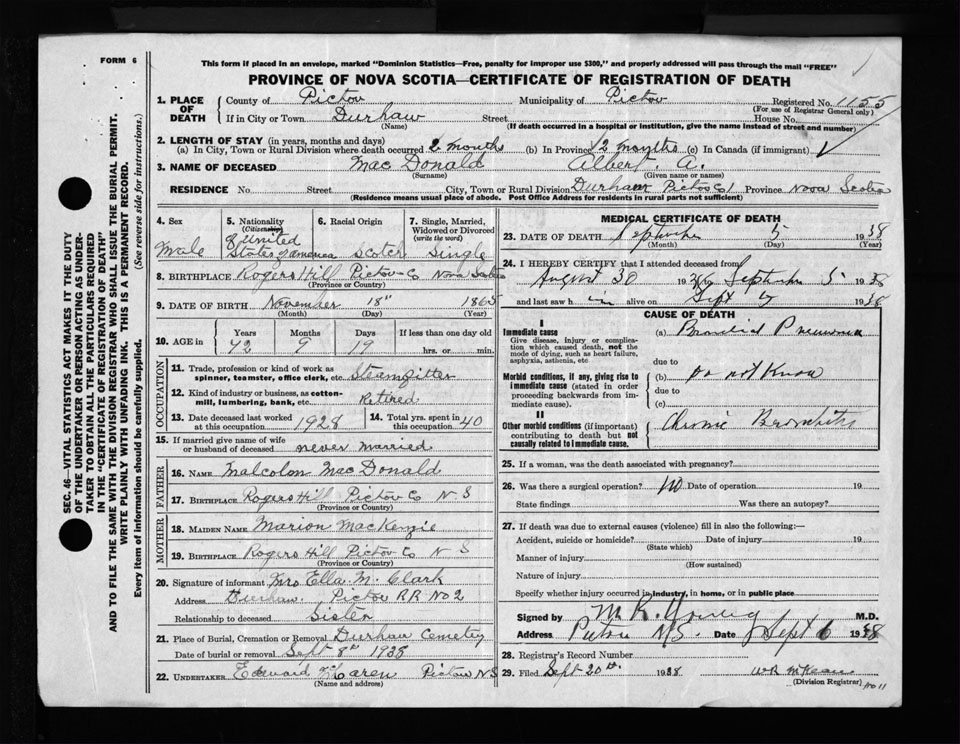 FORM 6
This form if placed in an envelope, marked "Dominion Statistics—Free, penalty for improper use $300," and properly addressed will pass through the mail "FREE"
PROVINCE OF NOVA SCOTIA—CERTIFICATE OF REGISTRATION OF DEATH
1. PLACE OF DEATH
County of Pictou Municipality of Pictou Registered No. 1155
(For use of Registrar General only)
If in City or Town Durham Street House No.
(Name) (If death occurred in a hospital or institution, give the name instead of street and number)
2. LENGTH OF STAY (in years, months and days)
(a) In City, Town or Rural Division where death occurred 2 months (b) In Province 2 months (c) In Canada (if immigrant)
3. NAME OF DECEASED Mac Donald Albert A.
(Surname) (Given name or names)
RESIDENCE No. Street City, Town or Rural Division Durham Pictou Co Province Nova Scotia
(Residence means usual place of abode. Post Office Address for residents in rural parts not sufficient)
4. Sex
Male
5. Nationality (Citizenship)
United States of America
6. Racial Origin
Scotch
7. Single, Married, Widowed or Divorced (write the word)
Single
8. BIRTHPLACE Rogers Hill Pictou Co Nova Scotia
(Province or Country)
9. DATE OF BIRTH November 18th 1865
(Month) (Day) (Year)
10. AGE in Years Months Days If less than one day old
72 9 19 hrs. or min.
OCCUPATION
11. Trade, profession or kind of work as spinner, teamster, office clerk, etc. Steamfitter
12. Kind of industry or business, as cotton-mill, lumbering, bank, etc. Retired
13. Date deceased last worked at this occupation 1928
14. Total yrs. spent in this occupation 40
15. If married give name of wife or husband of deceased never married
FATHER
16. NAME Malcolm MacDonald
17. BIRTHPLACE Rogers Hill Pictou Co N S
(Province or Country)
MOTHER
18. MAIDEN NAME Marion MacKenzie
19. BIRTHPLACE Rogers Hill Pictou Co N S
(Province or Country)
20. Signature of informant Mrs Ella M. Clark
Address Durham Pictou RR No 2
Relationship to deceased Sister
21. Place of Burial, Cremation or Removal Durham Cemetery
Date of burial or removal Sept 8th 1938
22. UNDERTAKER Edward Pictou N S
(Name and address)
MEDICAL CERTIFICATE OF DEATH
23. DATE OF DEATH September 5 1938
(Month) (Day) (Year)
24. I HEREBY CERTIFY that I attended deceased from
August 30 19 to September 5 1938
and last saw h im alive on Sept 5 1938
CAUSE OF DEATH
I
Immediate cause
Give disease, injury or complication which caused death, not the mode of dying, such as heart failure, asphyxia, asthenia, etc
(a) Bronchial Pneumonia
due to
Morbid conditions, if any, giving rise to immediate cause (stated in order proceeding backwards from immediate cause).
(b) Do not Know
due to
(c)
II
Other morbid conditions (if important) contributing to death but not causally related to immediate cause.
Chronic Bronchitis
25. If a woman, was the death associated with pregnancy?
26. Was there a surgical operation? No Date of operation 19
State findings Was there an autopsy?
27. If death was due to external causes (violence) fill in also the following:—
Accident, suicide or homicide? Date of injury 19
(State which)
Manner of injury
(How sustained)
Nature of injury
Specify whether injury occurred in industry, in home, or in public place
Signed by M R Young M.D.
Address Pictou N.S. Date Sept 6 1938
28. Registrar's Record Number
29. Filed Sept 20th 1938 W R McKean
(Division Registrar) No 11
SEC. 46—VITAL STATISTICS ACT MAKES IT THE DUTY
OF THE UNDERTAKER OR PERSON ACTING AS UNDER-
TAKER TO OBTAIN ALL THE PARTICULARS REQUIRED
IN THE "CERTIFICATE OF REGISTRATION OF DEATH"
AND TO FILE THE SAME WITH THE DIVISION REGISTRAR WHO SHALL ISSUE THE BURIAL PERMIT.
WRITE PLAINLY WITH UNFADING INK. THIS IS A PERMANENT RECORD.
Every item of information should be carefully supplied. (See reverse side for instructions.)